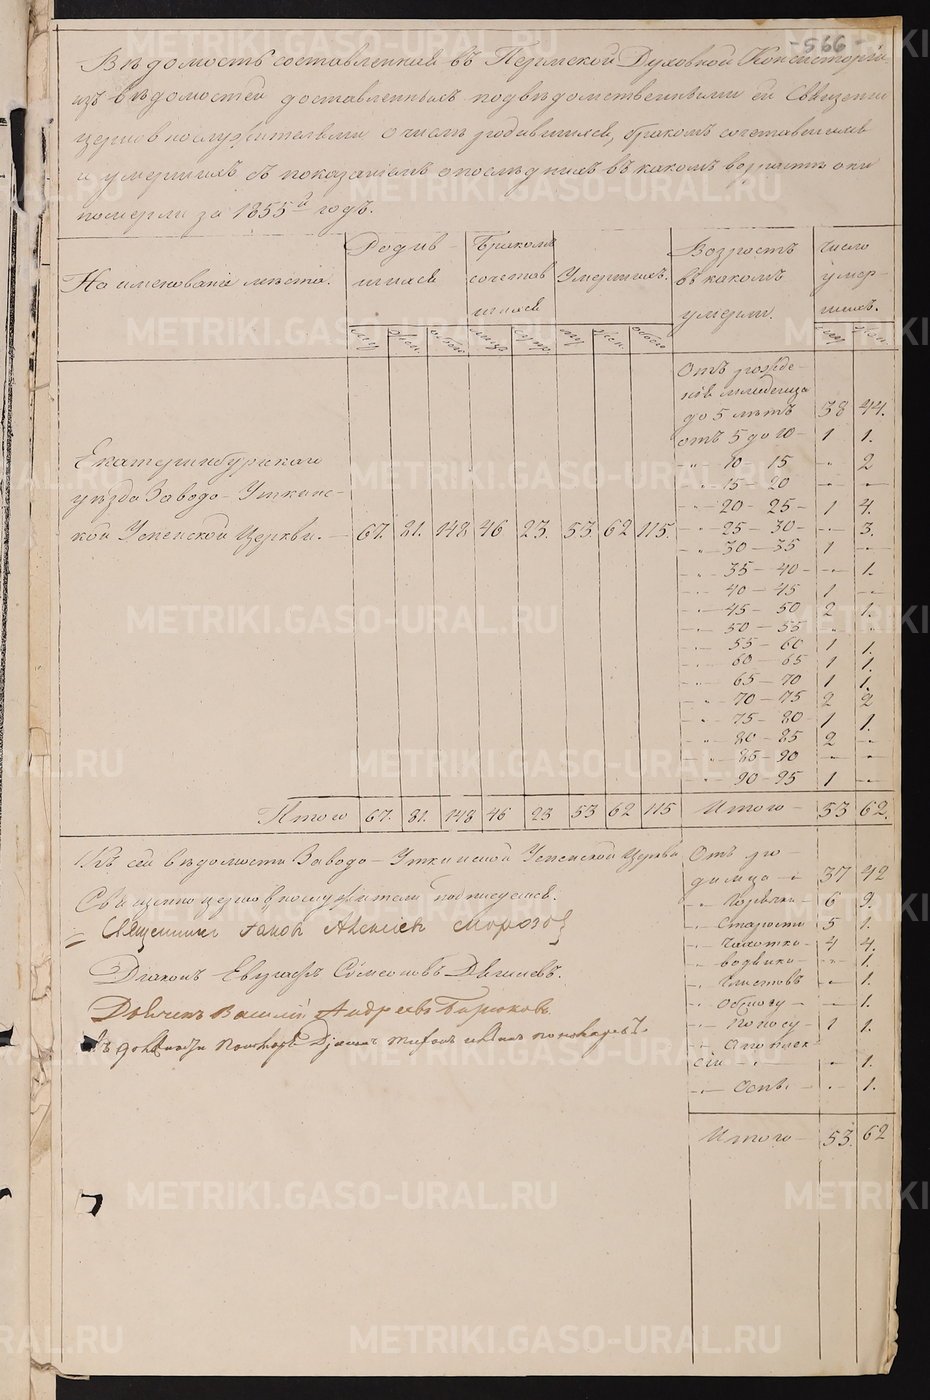 -566-
Вѣдомость составленная въ Пермской Духовной Консисторіи
изъ вѣдомостей доставленныхъ подвѣдомственными ей Священно
церковнослужителями о числѣ родившихся, бракомъ сочетавшихся
и умершихъ съ показаніемъ о послѣднихъ въ какомъ возрастѣ они
померли за 1855й годъ.
Наименованіе мѣста. Родив- Бракомъ Умершихъ. Возрастъ Число
шихся сочетав въ какомъ умер-
шихся умерли. шихъ.
муж жен. обоего муж жен. обоего муж жен.
Отъ рожде-
нія младенца
до 5 лѣтъ 38 44.
отъ 5 до 10 - 1 1.
" 10 - 15 - 2
" 15 - 20 - -
" 20 - 25 - 1 4.
" 25 - 30 - - 3.
" 30 - 35 1 -
" 35 - 40 - - 1.
" 40 - 45 1 -
" 45 - 50 2 1.
" 50 - 55 - -
" 55 - 60 1 1.
" 60 - 65 1 1.
" 65 - 70 1 1.
" 70 - 75 2 2
" 75 - 80 - 1 1.
" 80 - 85 2 -
" 85 - 90 - -
" 90 - 95 1 -
Екатеринбургскаго
уѣзда Заводо-Уткинс-
кой Успенской Церкви. - 67. 81. 148 46 23. 53. 62 115.
Итого 67. 81. 148 46 23 53 62 115 Итого - 53 62.
Къ сей вѣдомости Заводо-Уткинской Успенской Церкви
Священно церковнослужители подписуемся.
Священникъ Іаковъ Алексіевъ Морозовъ
Діаконъ Евграфъ Симеоновъ
Дьячекъ Василій Андреевъ Бирюковъ
Отъ ро-
димца - 37 42
" Горячки - 6 9.
" Старости 5 1.
" Чахотки - 4 4.
" водянки - - 1.
" Глистовъ - 1.
" Обжогу - - 1.
" Поносу - 1 1.
" Апоплек
сіи - - 1.
" Оспы. - - 1.
Итого - 53. 62
METRIKI.GASO-URAL.RU